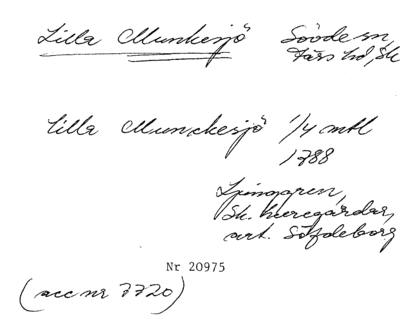 Lilla Munkesjö Sövde sn,
Färs hd, Sk
Lilla Munckesjö 1/4 mtl
1788
Ljunggren,
Sk. herregårdar,
art. Söfdeborg
Nr 20975
(acc nr 7720)